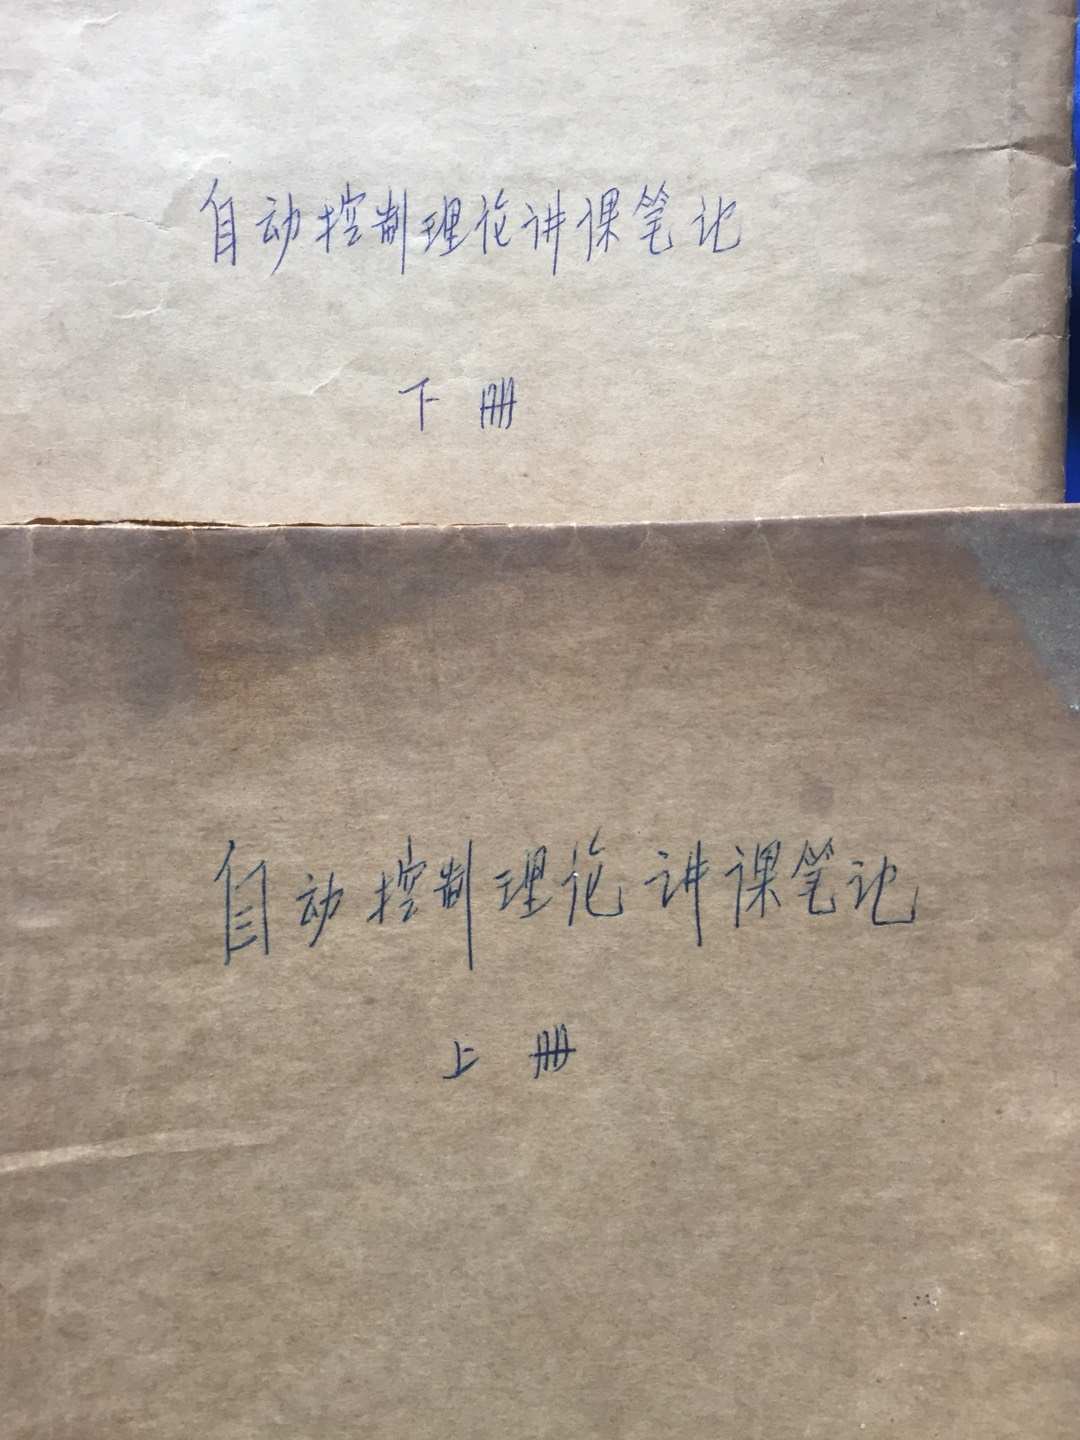 自动控制理论讲课笔记
下册
自动控制理论讲课笔记
上册